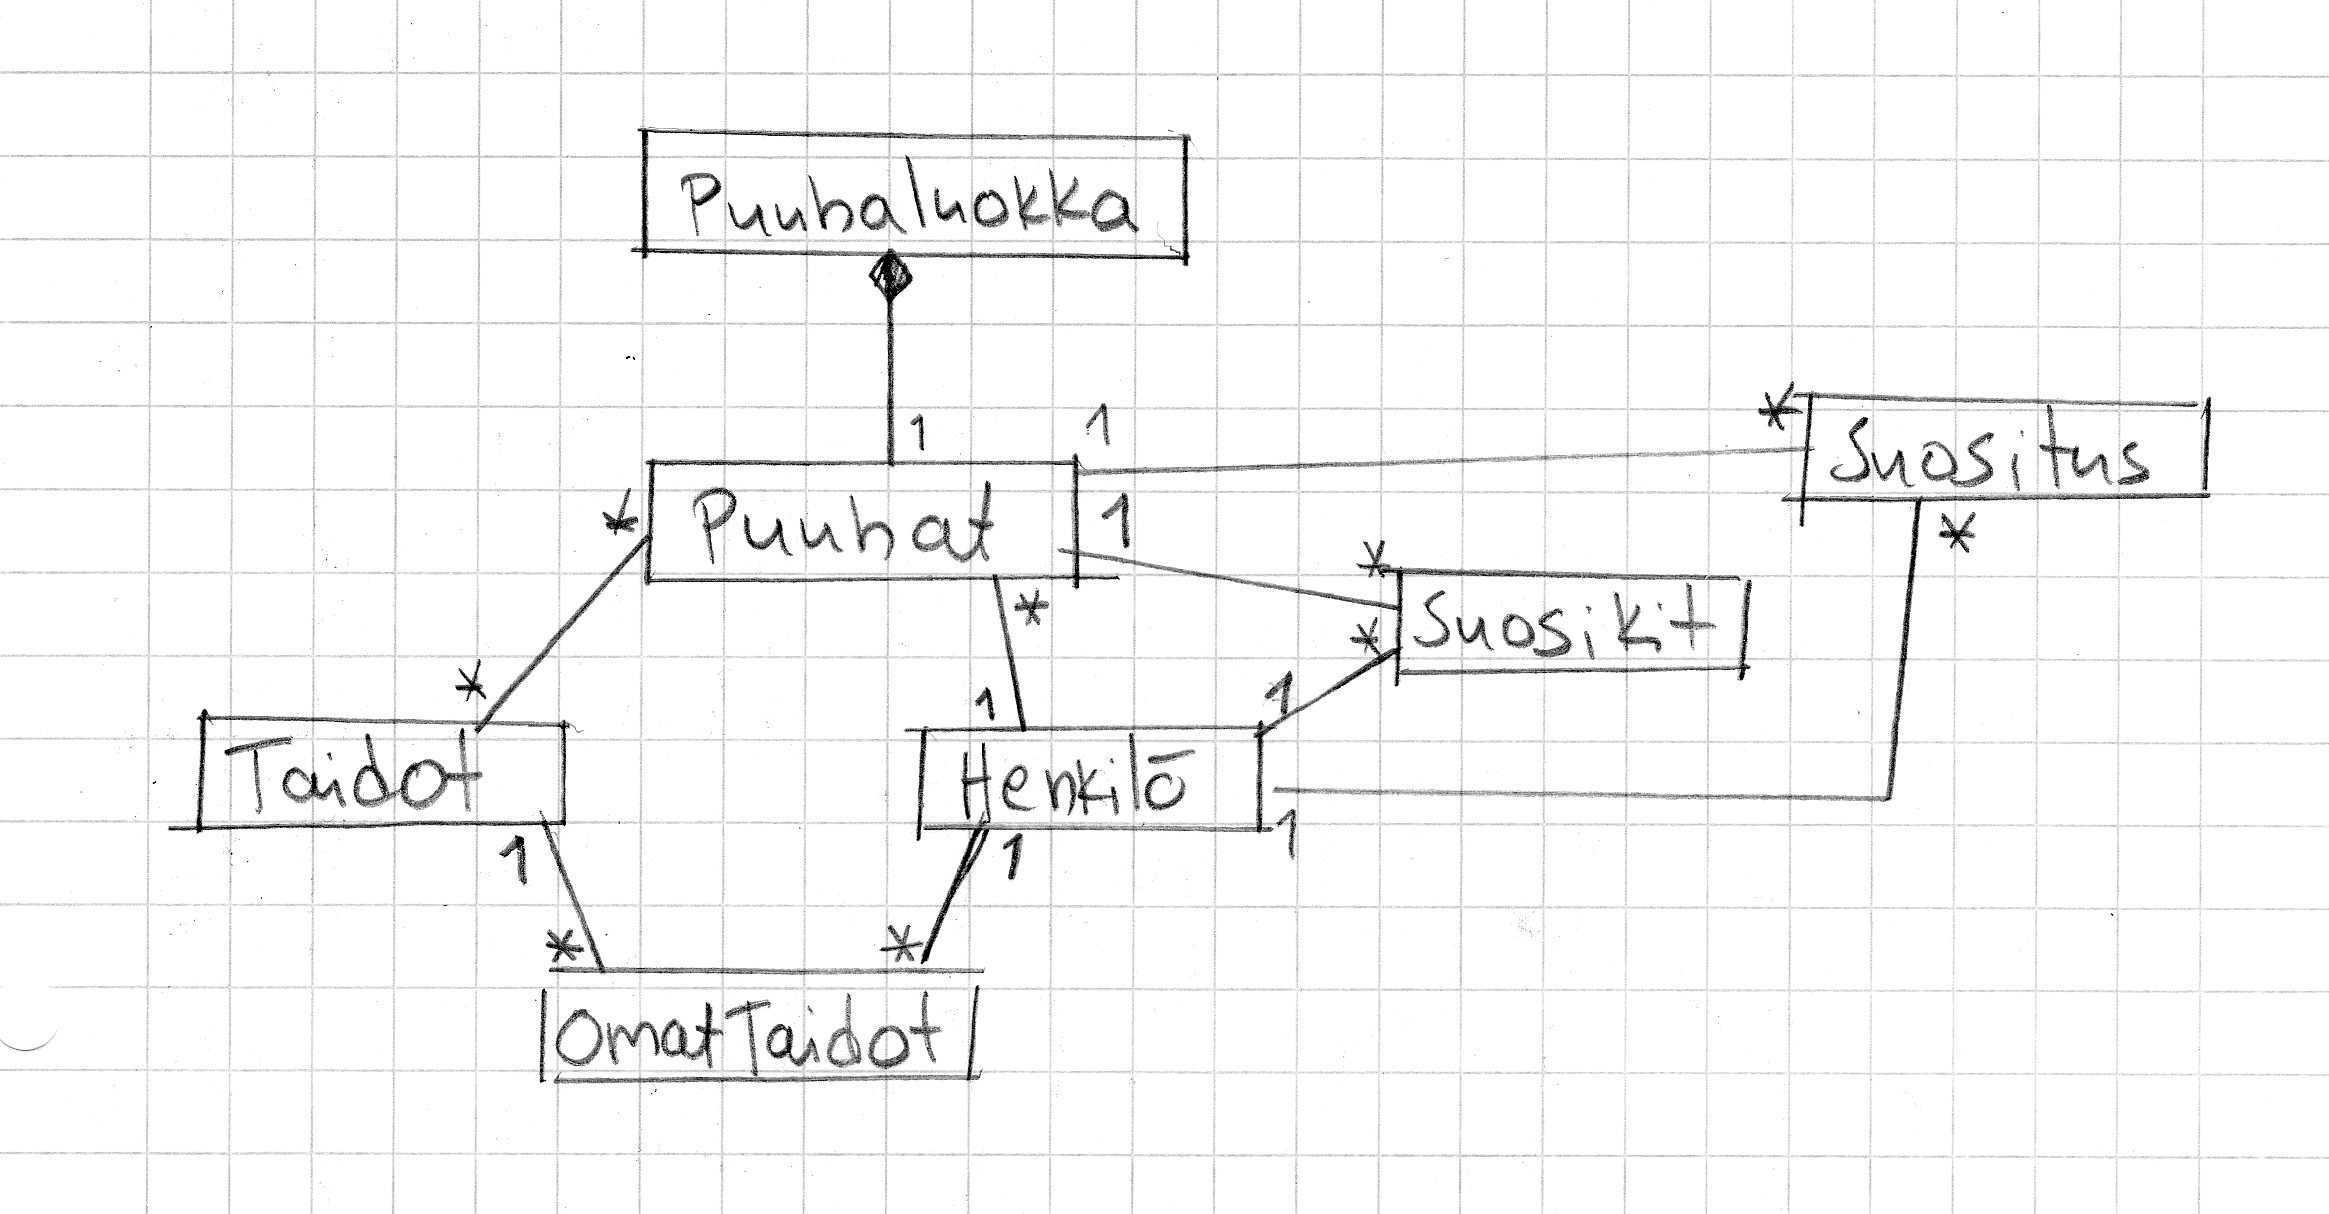 Puuhaluokka
1
1
*
Suositus
*
Puuhat
1
*
*
*
Suosikit
*
*
1
1
Taidot
Henkilö
1
1
1
*
*
OmatTaidot